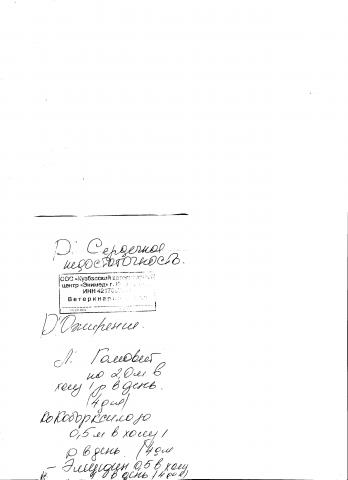 D: Сердечная
недостаточность.
ООО «Кузбасский ветеринарный
центр «Энимед» г.
ИНН 4217
Ветеринар
D: Ожирение.
Л: Гамавит
по 2,0 м в
холку 1 р в день.
(4 дня)
0,5 м в холку 1
р в день. (4 дня
– Эмицидин 0,5 в холку
в день (4 дня)